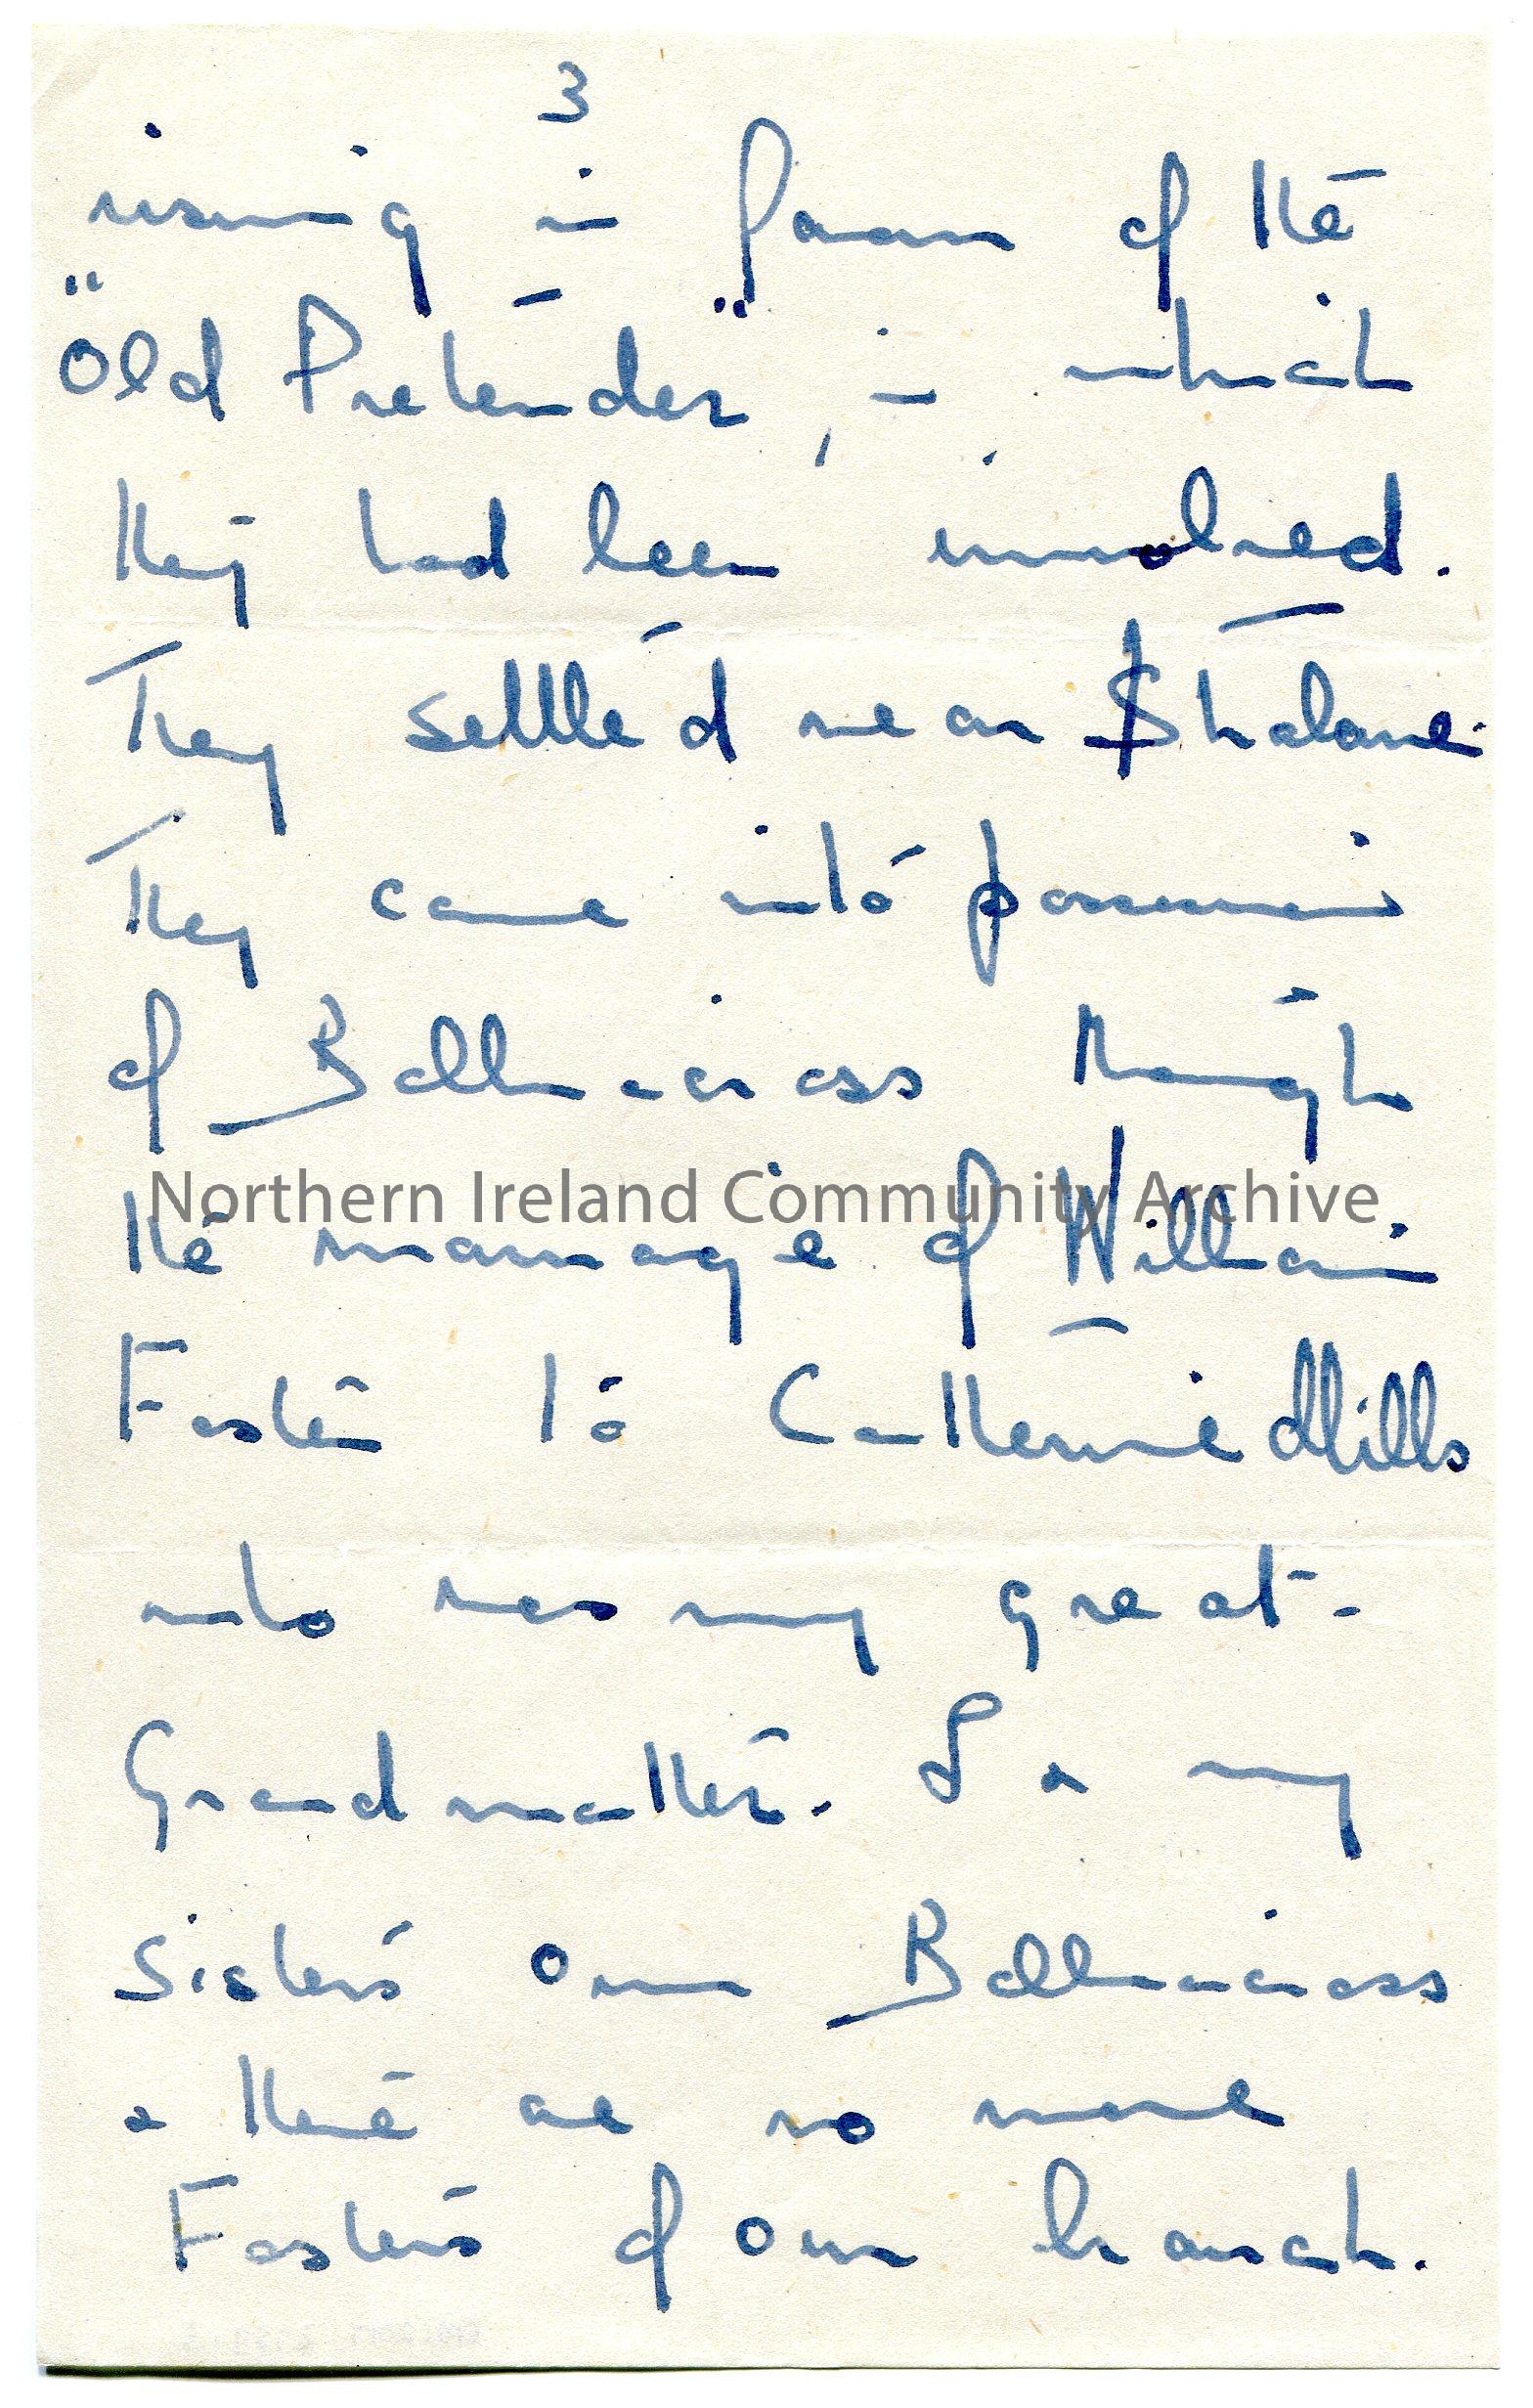 3
rising in favour of the
"Old Pretender", in which
they had been involved.
They settled near
They came into possession
of Ballinacross through
the marriage of William
Northern Ireland Community Archive
Foster to Catherine Mills
who was my great-
Grandmother. I & my
Sisters own Ballinacross
& there are no more
Fosters of our branch.